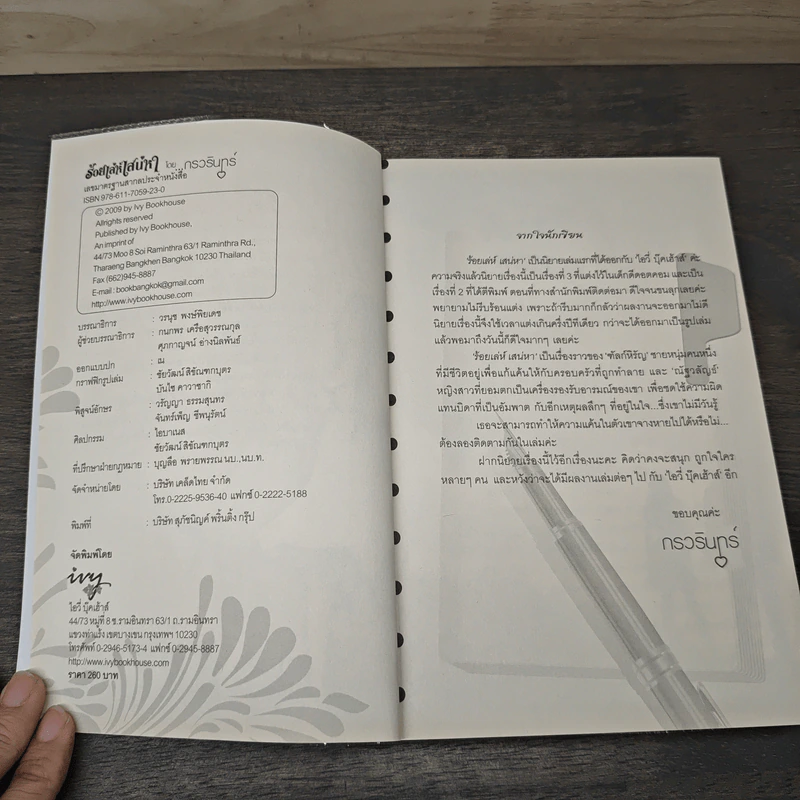 ร้อยเล่ห์เสน่หา โดย กรวรินทร์
เลขมาตรฐานสากลประจำหนังสือ
ISBN 978-611-7059-23-0
© 2009 by Ivy Bookhouse
Allrights reserved
Published by Ivy Bookhouse,
An imprint of
44/73 Moo 8 Soi Raminthra 63/1 Raminthra Rd.,
Tharaeng Bangkhen Bangkok 10230 Thailand
Fax (662)945-8887
E-mail : bookbangkok@gmail.com
http://www.ivybookhouse.com
บรรณาธิการ : วรนุช พงษ์พิยเดช
ผู้ช่วยบรรณาธิการ : กนกพร เครือสุวรรณกุล
ศุภกาญจน์ อ่างนิลพันธ์
ออกแบบปก : ณ
กราฟฟิกรูปเล่ม : ชัยวัฒน์ สิขัณฑกบุตร
บันไซ คาวาซากิ
พิสูจน์อักษร : วรัญญา ธรรมสุนทร
: จันทร์เพ็ญ ชีพนุรัตน์
ศิลปกรรม : ไอบาเนส
ชัยวัฒน์ สิขัณฑกบุตร
ที่ปรึกษาฝ่ายกฎหมาย : บุญลือ พรายพรรณ นบ.,นบ.ท.
จัดจำหน่ายโดย : บริษัท เคล็ดไทย จำกัด
โทร.0-2225-9536-40 แฟกซ์ 0-2222-5188
พิมพ์ที่ : บริษัท สุภัชนิญค์ พริ้นติ้ง กรุ๊ป
จัดพิมพ์โดย
ivy
ไอวี่ บุ๊คเฮ้าส์
44/73 หมู่ที่ 8 ซ.รามอินทรา 63/1 ถ.รามอินทรา
แขวงท่าแร้ง เขตบางเขน กรุงเทพฯ 10230
โทรศัพท์ 0-2946-5173-4 แฟกซ์ 0-2945-8887
http://www.ivybookhouse.com
ราคา 260 บาท
จากใจนักเขียน
'ร้อยเล่ห์ เสน่หา' เป็นนิยายเล่มแรกที่ได้ออกกับ 'ไอวี่ บุ๊คเฮ้าส์' ค่ะ
ความจริงแล้วนิยายเรื่องนี้เป็นเรื่องที่ 3 ที่แต่งไว้ในเด็กดีดอตคอม และเป็น
เรื่องที่ 2 ที่ได้ตีพิมพ์ ตอนที่ทางสำนักพิมพ์ติดต่อมา ดีใจจนขนลุกเลยค่ะ
พยายามไม่รีบร้อนแต่ง เพราะถ้ารีบมากก็กลัวว่าผลงานจะออกมาไม่ดี
นิยายเรื่องนี้จึงใช้เวลาแต่งเกินครึ่งปีทีเดียว กว่าจะได้ออกมาเป็นรูปเล่ม
แล้วพอมาถึงวันนี้ก็ดีใจมากๆ เลยค่ะ
'ร้อยเล่ห์ เสน่หา' เป็นเรื่องราวของ 'ทัลก์หิรัญ' ชายหนุ่มคนหนึ่ง
ที่มีชีวิตอยู่เพื่อแก้แค้นให้กับครอบครัวที่ถูกทำลาย และ 'ณัฐวลัญช์'
หญิงสาวที่ยอมตกเป็นเครื่องรองรับอารมณ์ของเขา เพื่อชดใช้ความผิด
แทนบิดาที่เป็นอัมพาต กับอีกเหตุผลลึกๆ ที่อยู่ในใจ...ซึ่งเขาไม่มีวันรู้
เธอจะสามารถทำให้ความแค้นในตัวเขาจางหายไปได้หรือไม่...
ต้องลองติดตามกันในเล่มค่ะ
ฝากนิยายเรื่องนี้ไว้อีกเรื่องนะคะ คิดว่าคงจะสนุก ถูกใจใคร
หลายๆ คน และหวังว่าจะได้มีผลงานเล่มต่อๆ ไป กับ 'ไอวี่ บุ๊คเฮ้าส์' อีก
ขอบคุณค่ะ
กรวรินทร์